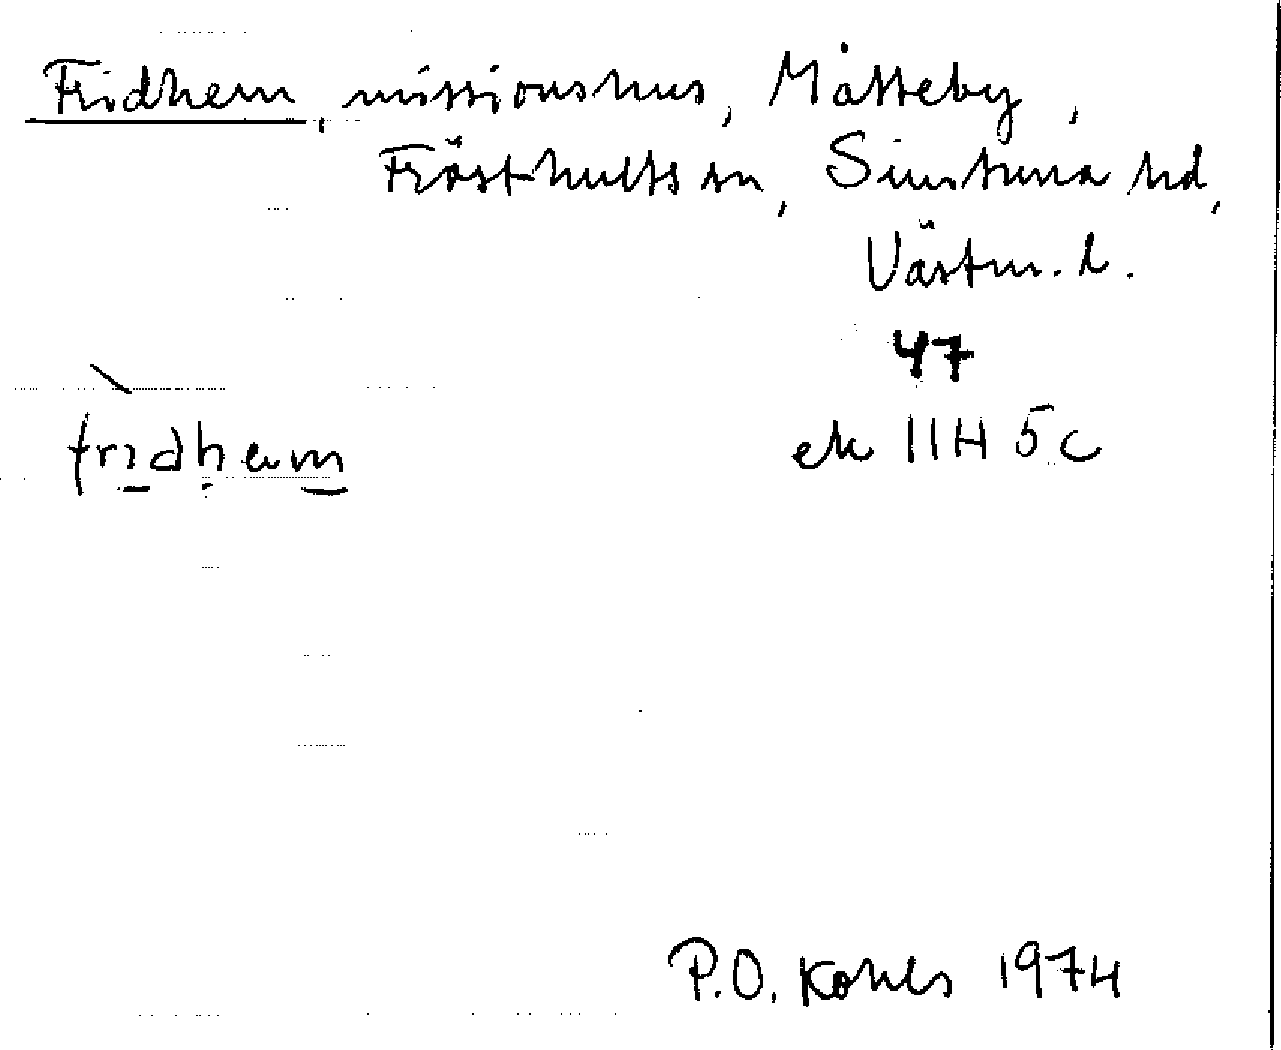 Fridhem, missionshus, Målteby,
Frösthults sn, Simtuna hd,
Västm. l.
47
fridhem
ek 11H 5c
P.O. Kohls 1974